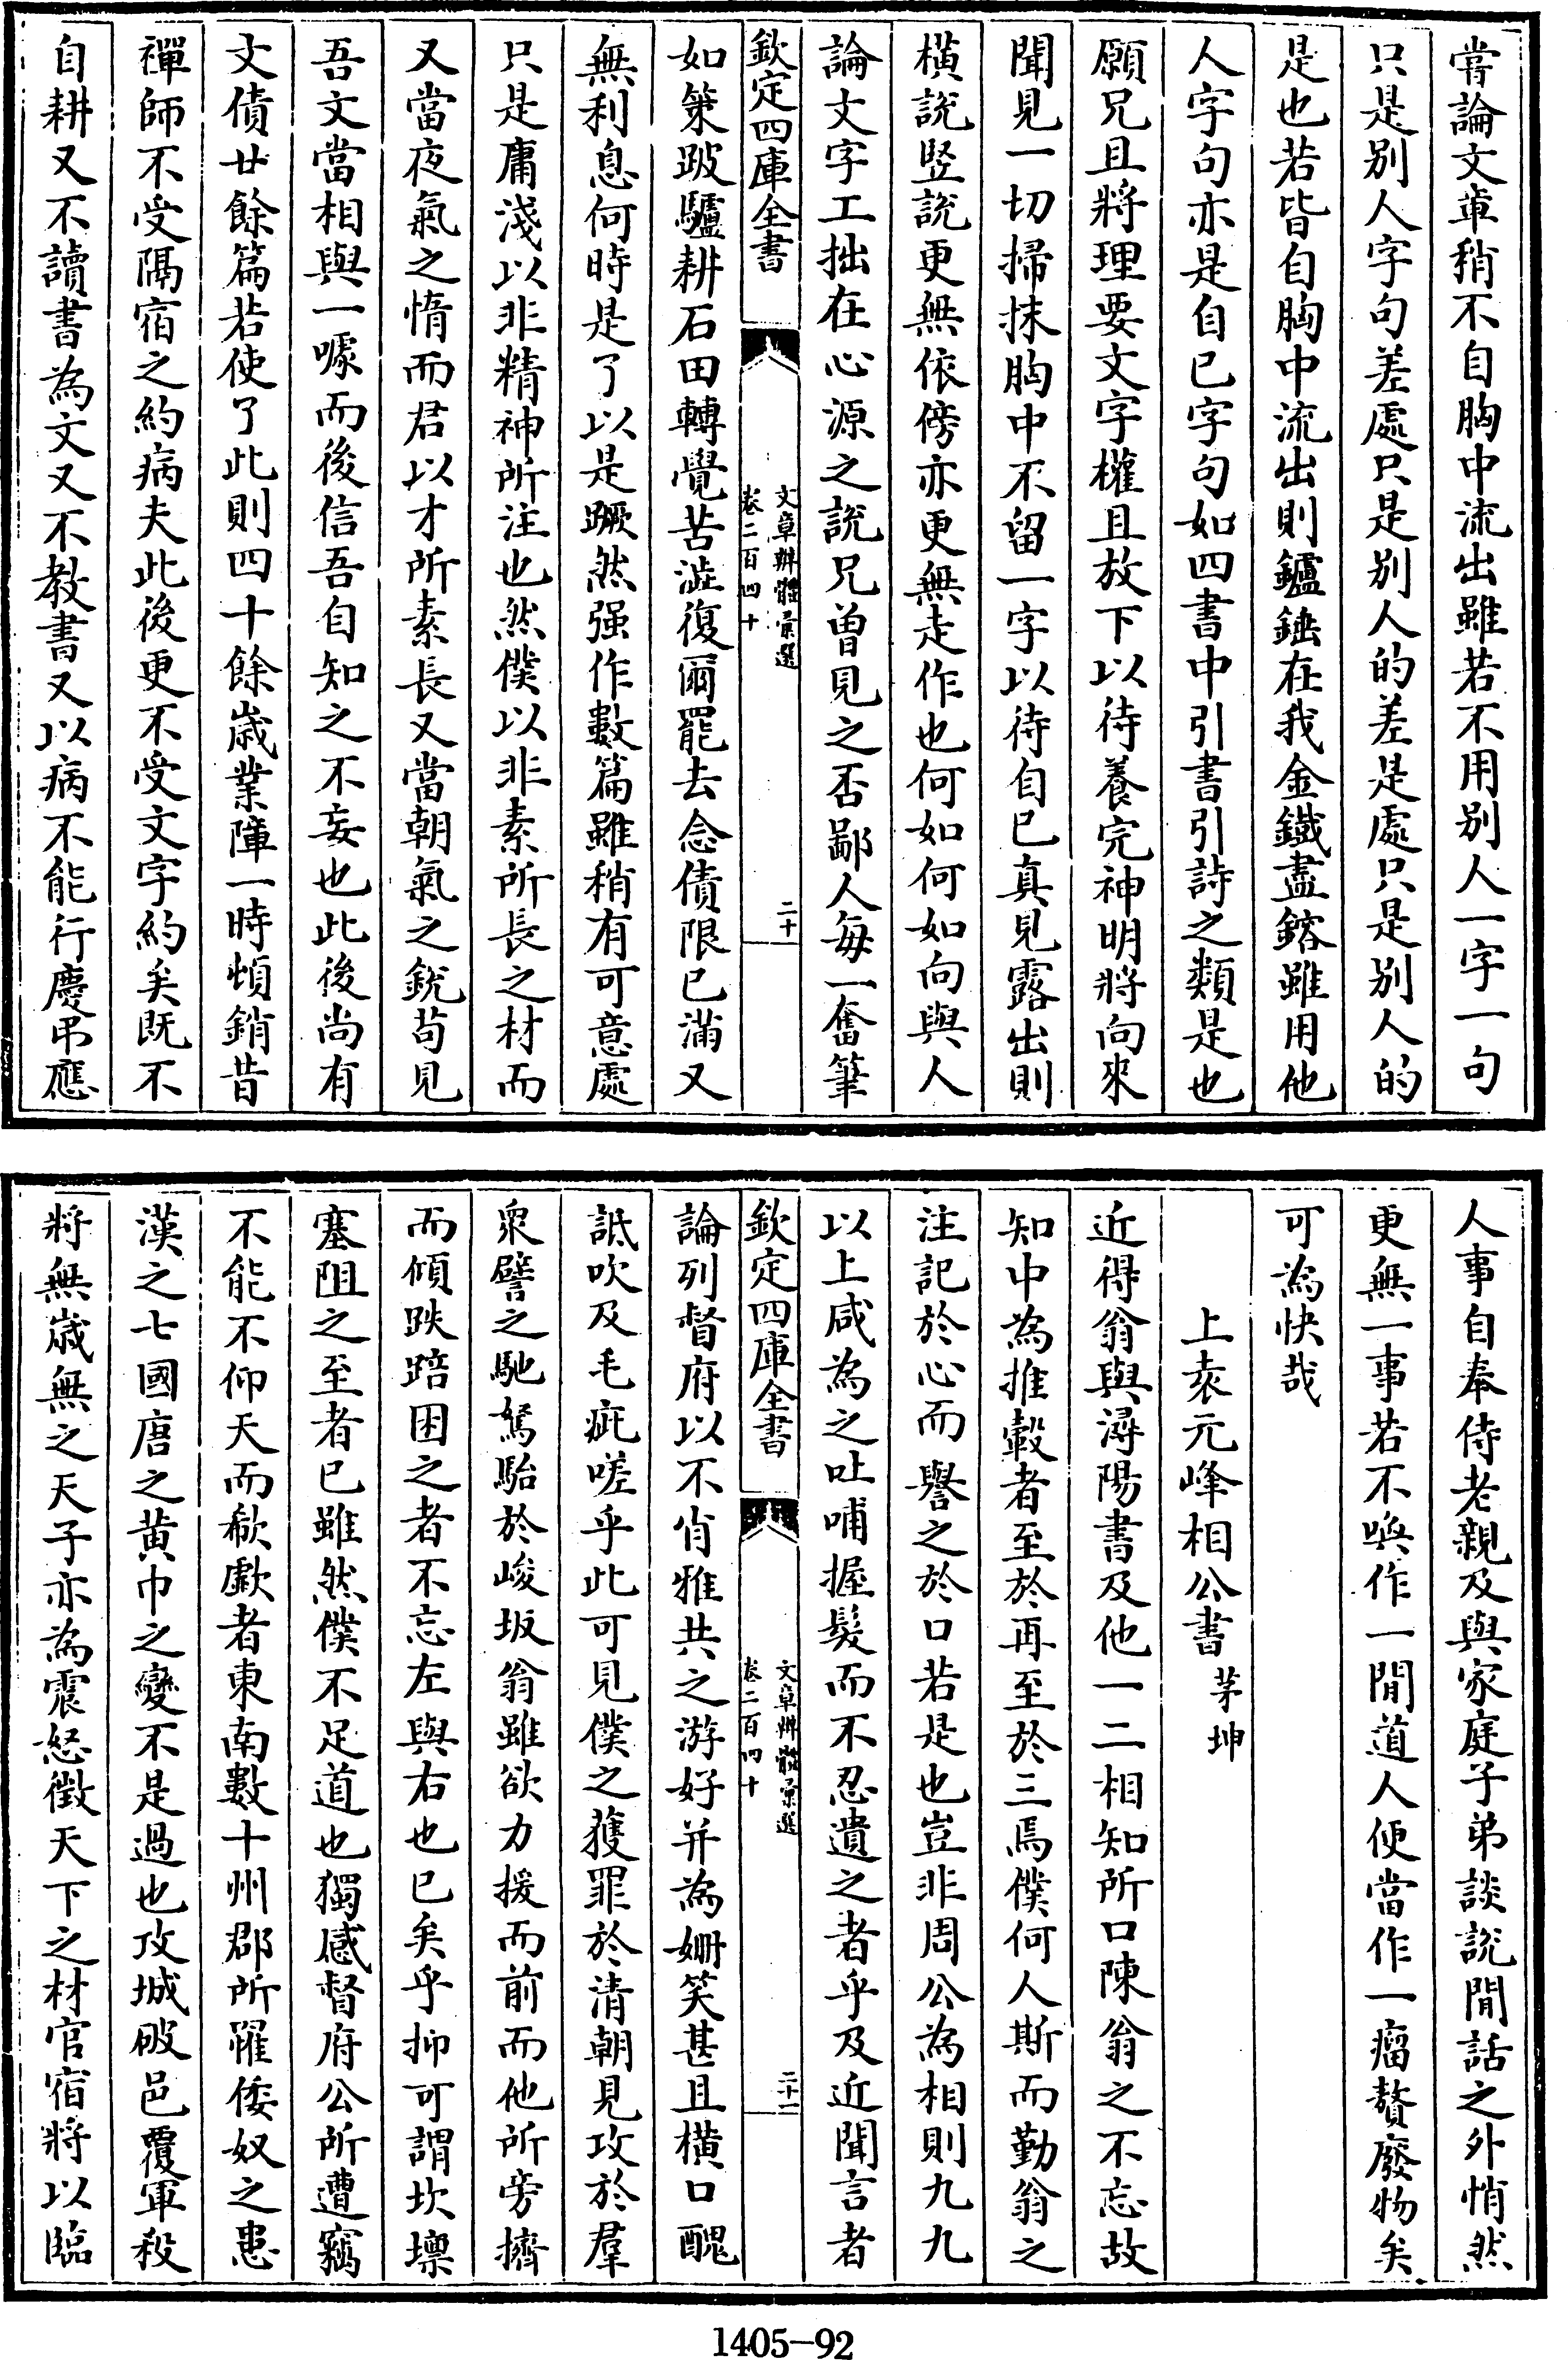 嘗論文章稍不自胸中流出雖若不用别人一字一句
只是别人字句差處只是别人的差是處只是别人的
是也若皆自胸中流出則鑪錘在我金鐵盡鎔雖用他
人字句亦是自已字句如四書中引書引詩之類是也
願兄且將理要文字權且放下以待養完神明將向來
聞見一切掃抹胸中不留一字以待自已真見露出則
橫說竪説更無依傍亦更無走作也何如何如向與人
論文字工拙在心源之說兄曽見之否鄙人每一奮筆
欽定四庫全書
文章辨體彚選
卷二百四十
二十
如策跛驢耕石田轉覺苦澁復爾罷去念債限已滿又
無利息何時是了以是蹶然强作數篇雖稍有可意處
只是庸淺以非精神所注也然僕以非素所長之材而
又當夜氣之惰而君以才所素長又當朝氣之銳苟見
吾文當相與一噱而後信吾自知之不妄也此後尚有
文債廿餘篇若使了此則四十餘歲業障一時頓銷昔
禪師不受隔宿之約病夫此後更不受文字約矣既不
自耕又不讀書為文又不教書又以病不能行慶弔應
人事自奉侍老親及與家庭子弟談說閒話之外悄然
更無一事若不喚作一閒道人便當作一瘤贅廢物矣
可為快哉
上袁元峰相公書 茅坤
近得翁與潯陽書及他一二相知所口陳翁之不忘故
知中為推轂者至於再至於三焉僕何人斯而勤翁之
注記於心而譽之於口若是也豈非周公為相則九九
以上咸為之吐哺握髮而不忍遺之者乎及近聞言者
欽定四庫全書
文章辨體彚選
卷二百四十
二十一
論列督府以不肖雅共之游好并為姍笑甚且橫口醜
詆吹及毛疵嗟乎此可見僕之蒦罪於清朝見攻於羣
衆譬之馳駑駘於峻坂翁雖欲力援而前而他所旁擠
而傾跌踣困之者不忘左與右也已矣乎抑可謂坎壈
塞阻之至者已雖然僕不足道也獨感督府公所遭竊
不能不仰天而欷歔者東南數十州郡所罹倭奴之患
漢之七國唐之黄巾之變不是過也攻城破邑覆軍殺
將無歲無之天子亦為震怒徵天下之材官宿將以臨
1405-92